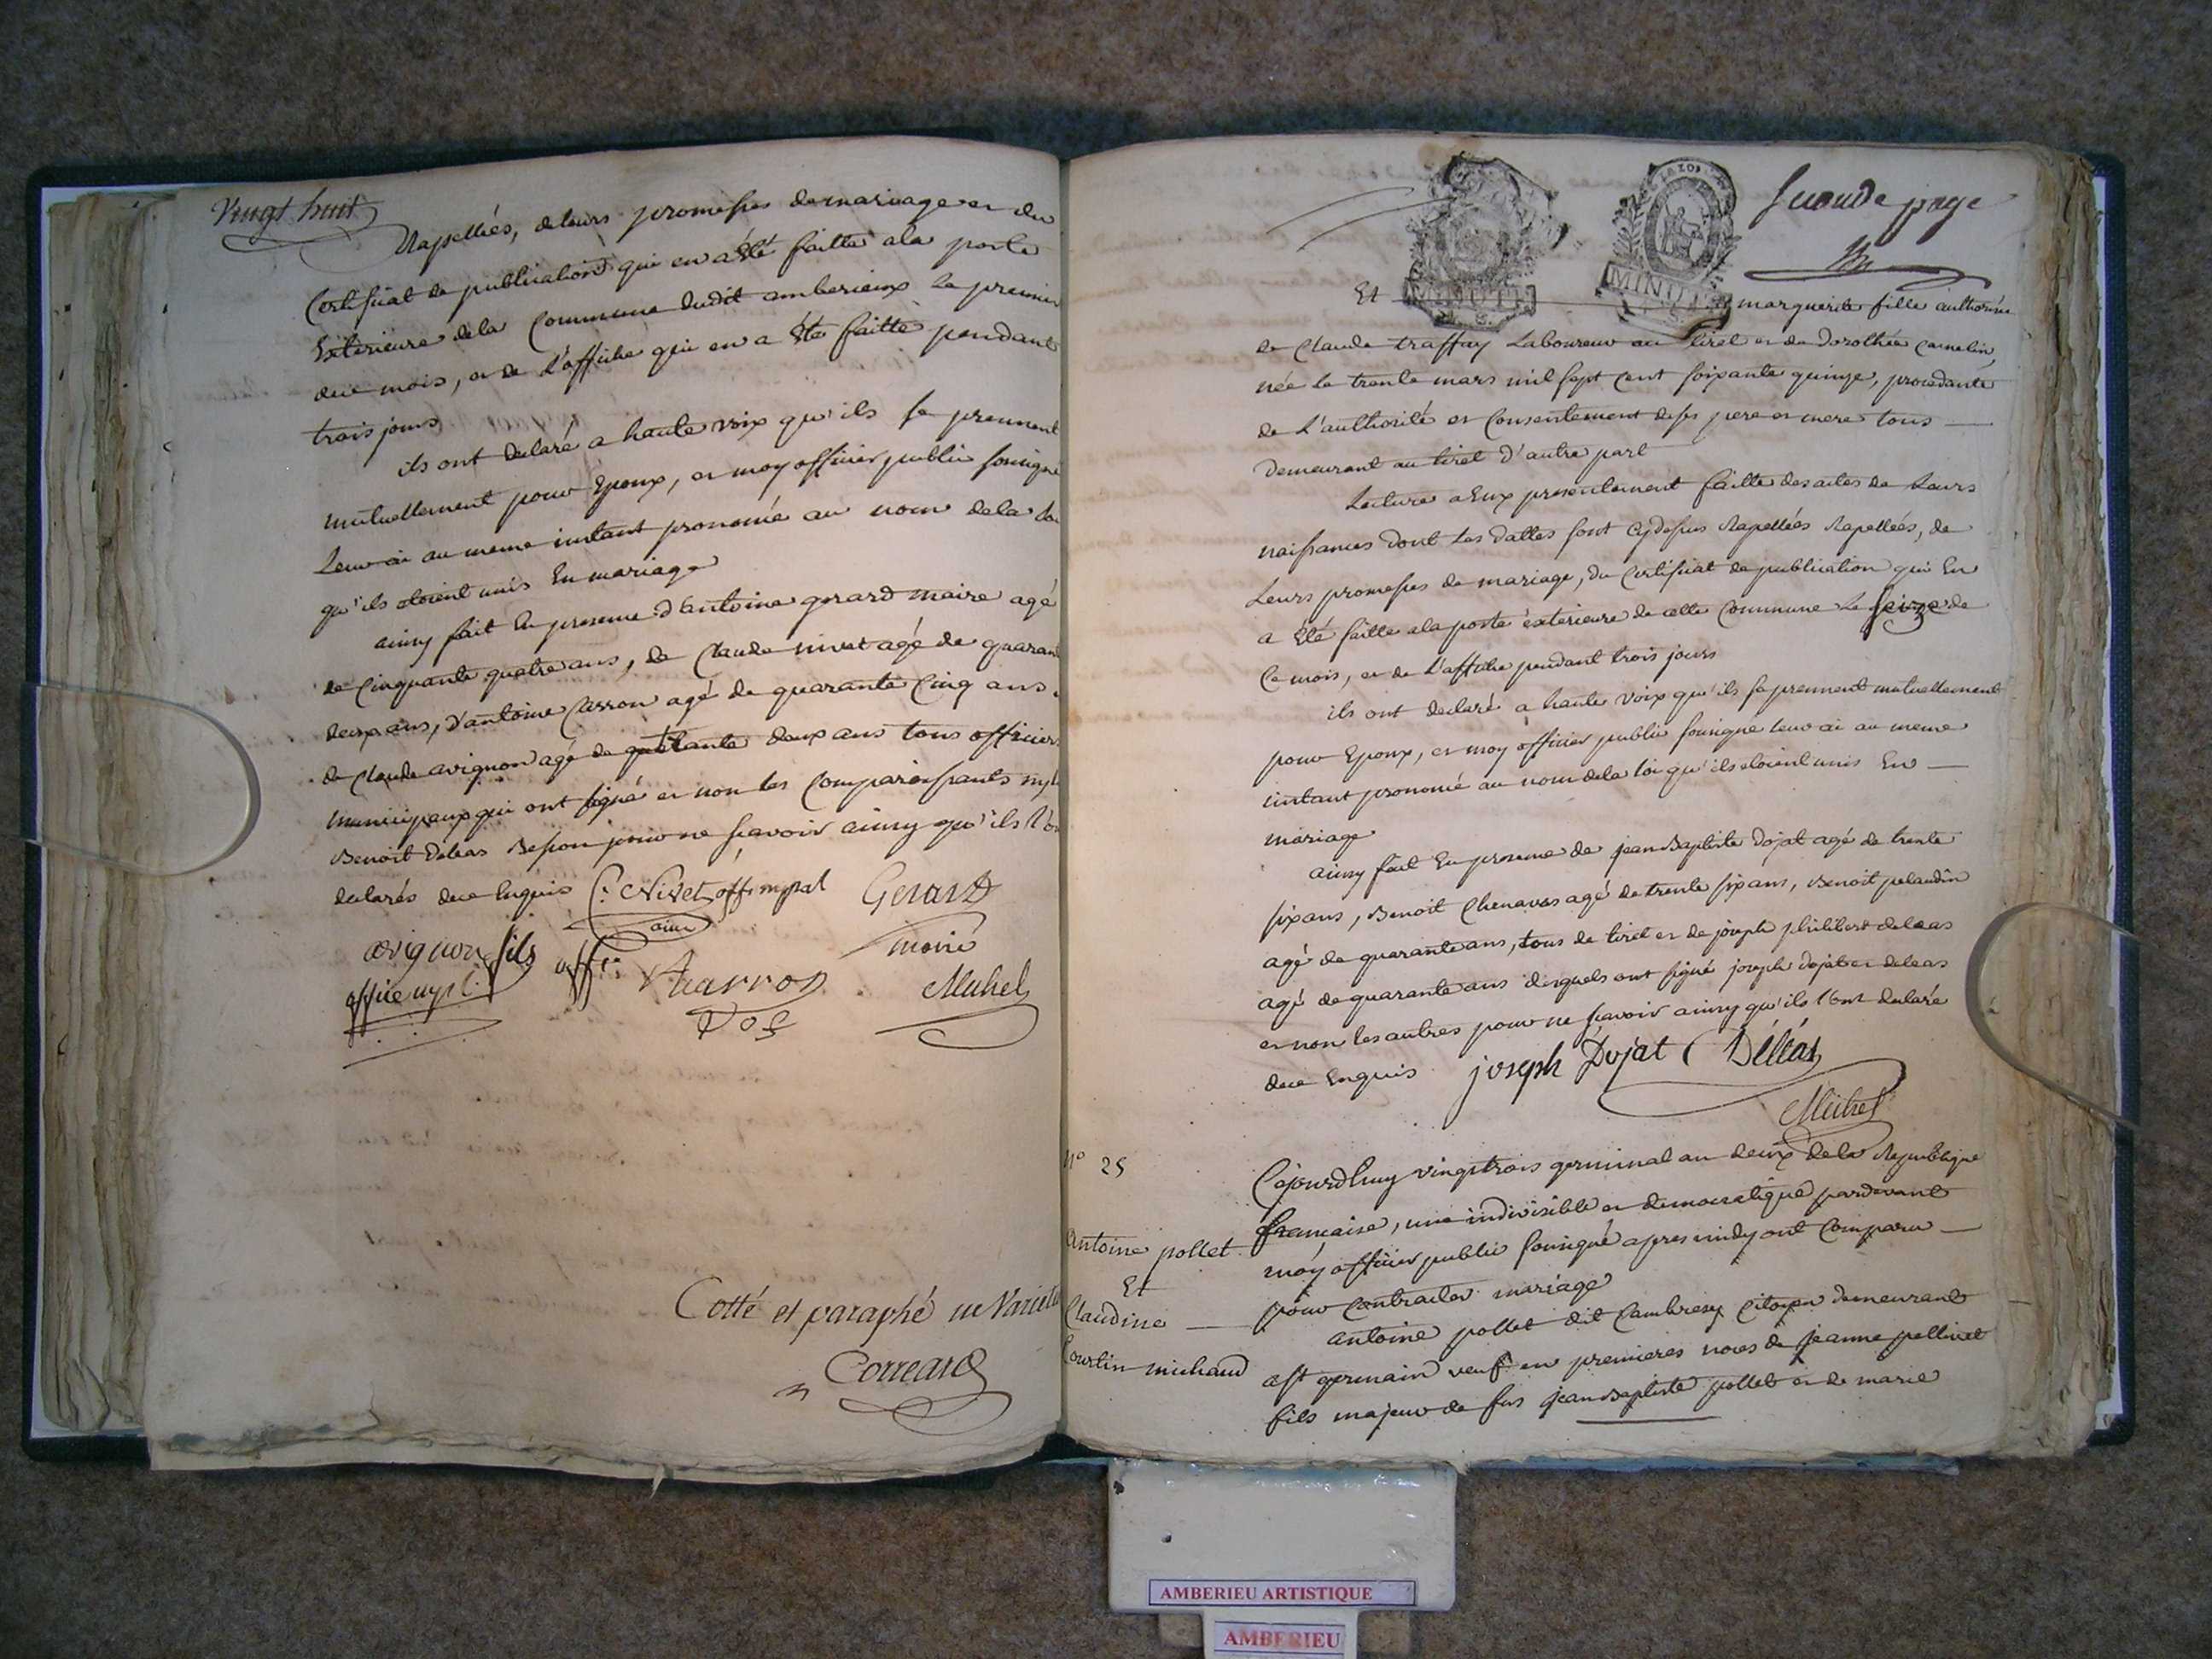 Vingt huit
Rapellées, de leurs promesses de mariage et du
Certificat de publication qui en a êté faitte a la porte
Exterieure de la Commune dudit amberieux le premier
duce mois, et de l'affiche qui en a êté faitte pendant
trois jours
ils ont declaré a haute voix qu'ils se prennent
mutuellement pour Epoux, et moy officier public soussigné
Leur ai au meme instant prononcé au nom de la
qu'ils etoient unis En mariage
ainsy fait En presence d'antoine gerard maire agé
de Cinquante quatre ans, de Claude nivet agé de
deux ans, d'antoine Carron agé de quarante Cinq ans
de Claude avignon agé de deux ans tous officiers
municipaux qui ont signé et non les Comparoissants
Benoit déleas Besson pour ne scavoir ainsy qu'ils
declarés duce Enquis C. Nivet off. mpal Gerard
avignon fils maire
Carron Michel
Cotté et paraphé ne Varietur
Correard
seconde page
MINUTE
MINUTE
Et marguerite fille
de Claude traffay Laboureur au tiret et de Dorothée Camelin,
née le trente mars mil sept Cent soixante quinze, procedante
de L'authorité et Consentement de ses pere et mere tous
Demeurant au tiret d'autre part
Lecture a Eux presentement faitte des actes de Leurs
naissances dont Les dattes sont Cydessus Rapellées Rapellées, de
Leurs promesses de mariage, du Certificat de publication qui En
a êté faitte a la porte éxterieure de cette Commune Le seize de
Ce mois, et de L'affiche pendant trois jours
ils ont declaré a haute voix qu'ils se prennent mutuellement
pour Epoux, et moy officier public soussigné leur ai au meme
instant prononcé au nom de la loi qu'ils etoient unis En
mariage
ainsy fait En presence de jean Baptiste Dojat agé de trente
six ans, Benoit Chenavas agé de trente six ans, Benoit pelaudin
agé de quarante ans, tous de tiret et de joseph philibert deleas
agé de quarante ans desquels ont signé joseph dojat et deleas
et non les autres pour ne scavoir ainsy qu'ils l'ont declaré
duce Enquis joseph Dojat Déléas
Michel
N° 25
Antoine pollet
Et
Claudine
Courtin michaud
Cejourdhuy vingt trois germinal an deux de la Republique
francaise, une indivisible et democratique pardevant
moy officier public soussigné apres midy ont Comparu
pour Contracter mariage
antoine pollet dit Cambresy Citoyen demeurant
a st germain veuf en premieres noces de jeanne pellivat
fils majeur de fus jean Baptiste pollet et de marie
AMBERIEU ARTISTIQUE
AMBERIEU